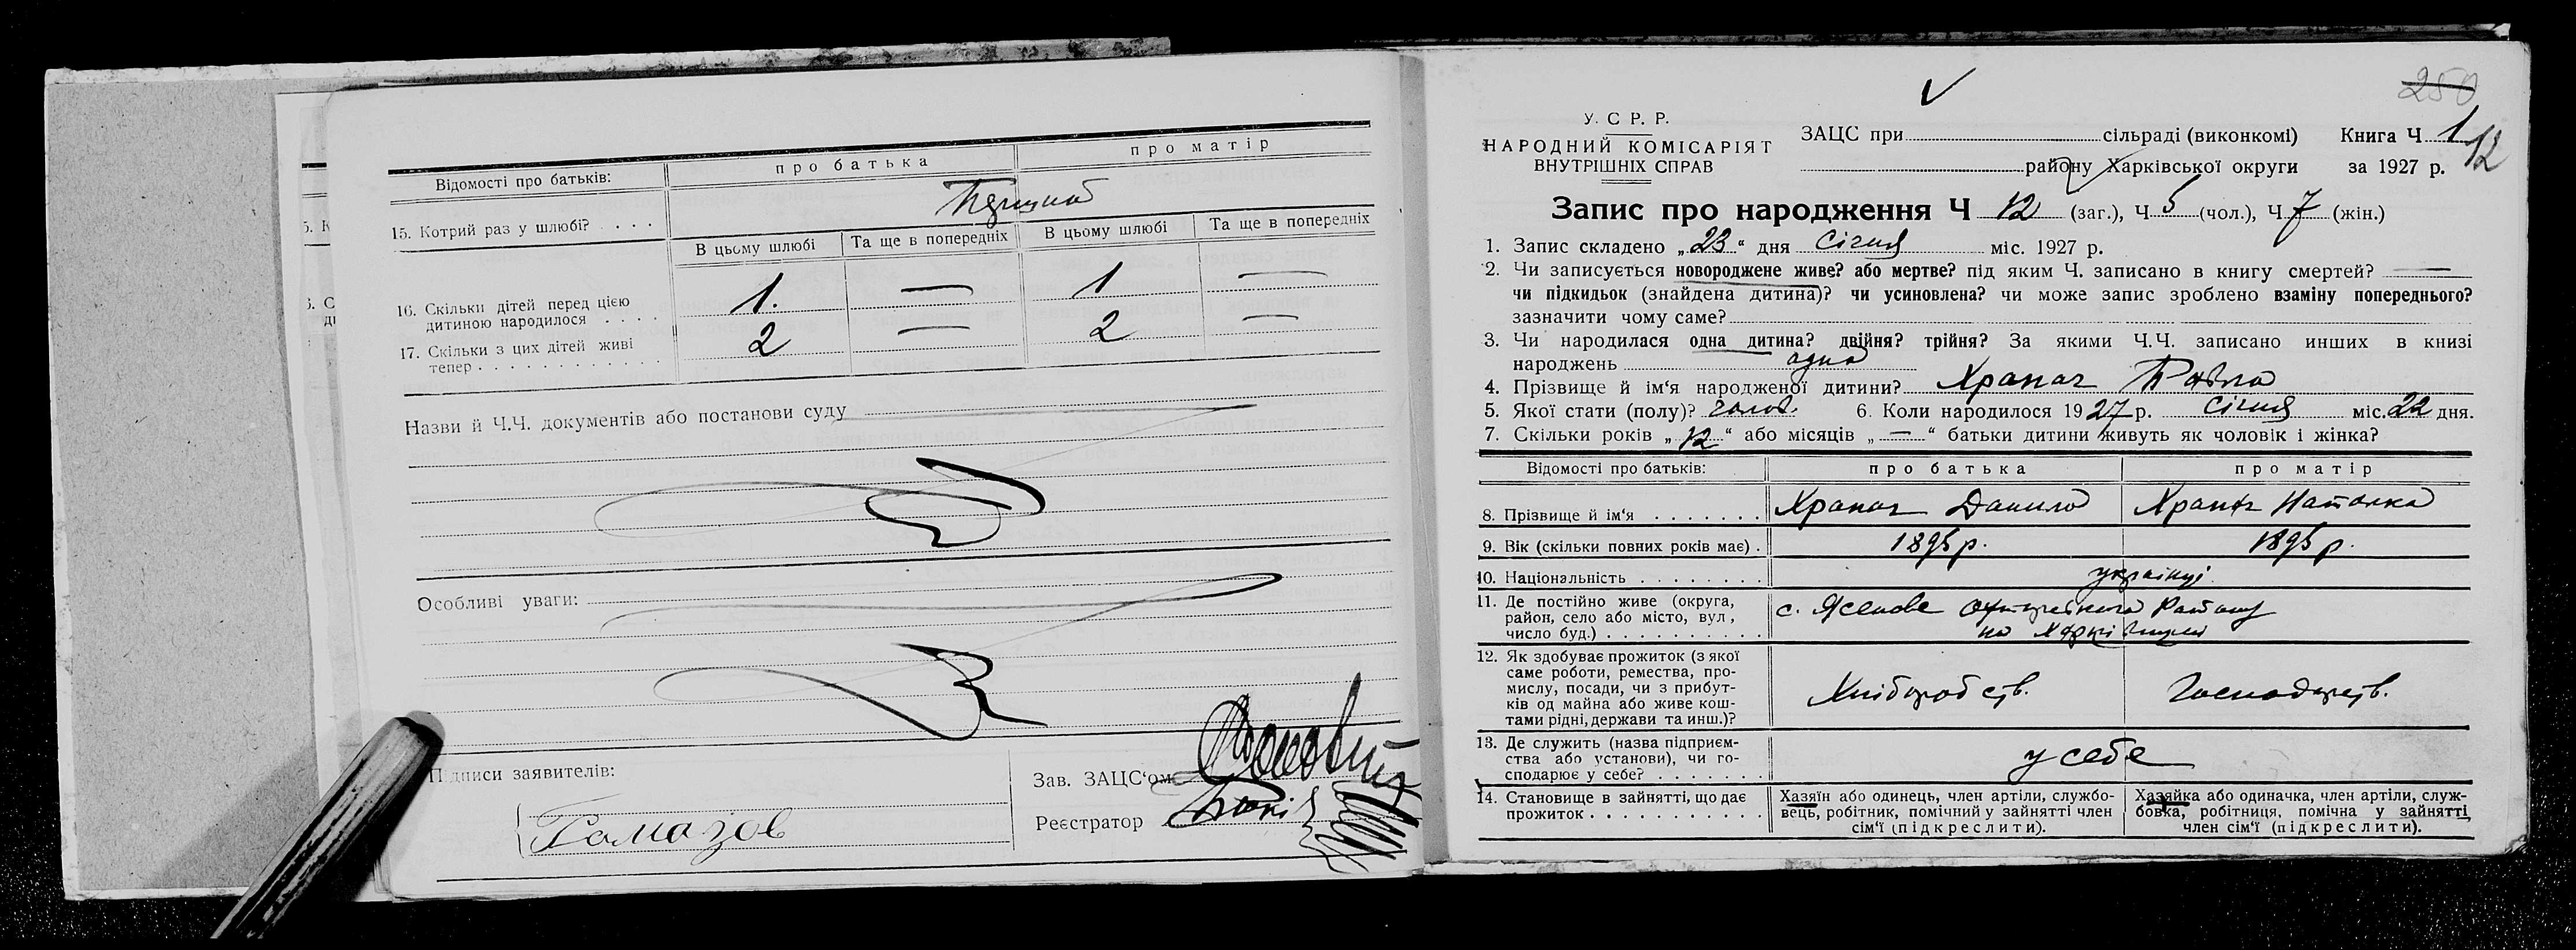 Відомості про батьків:
про батька
про матір
15. Котрий раз у шлюбі? . . . .
Перший
В цьому шлюбі
Та ще в попередніх
В цьому шлюбі
Та ще в попередніх
16. Скільки дітей перед цією
дитиною народилося . . . .
1. — 1 —
17. Скільки з цих дітей живі
тепер . . . . . . . . . . .
2 — 2 —
Назви й Ч.Ч. документів або постанови суду
Особливі уваги:
Підписи заявителів:
Зав. ЗАЦС'ом
Реєстратор
250
У. С. Р. Р.
НАРОДНИЙ КОМІСАРІЯТ
ВНУТРІШНІХ СПРАВ
ЗАЦС при сільраді (виконкомі)
району Харківської округи
Книга Ч 1
за 1927 р.
12
Запис про народження Ч 12 (заг.), Ч 5 (чол.), Ч 7 (жін.)
1. Запис складено „23“ дня січня міс. 1927 р.
2. Чи записується новороджене живе? або мертве? під яким Ч. записано в книгу смертей? —
чи підкидьок (знайдена дитина)? чи усиновлена? чи може запис зроблено взаміну попереднього?
зазначити чому саме?
3. Чи народилася одна дитина? двійня? трійня? За якими Ч.Ч. записано инших в книзі
народжень одна
4. Прізвище й ім'я народженої дитини? Храпач Павло
5. Якої стати (полу)? чолов. 6. Коли народилося 1927 р. січня міс. 22 дня.
7. Скільки років „12“ або місяців „—“ батьки дитини живуть як чоловік і жінка?
Відомості про батьків:
про батька
про матір
8. Прізвище й ім'я . . . . . . .
Храпач Данило
Храпач Наталка
9. Вік (скільки повних років має) .
1895 р.
1895 р.
10. Національність . . . . . . . .
українці
11. Де постійно живе (округа,
район, село або місто, вул,
число буд.) . . . . . . . . . . .
с. Ясенове Охтирського Району
на Харківщині
12. Як здобуває прожиток (з якої
саме роботи, ремества, про-
мислу, посади, чи з прибут-
ків од майна або живе кош-
тами рідні, держави та инш.)?
Хліборобств.
Господарств.
13. Де служить (назва підприєм-
ства або установи), чи го-
сподарює у себе? . . . . . . .
у себе
14. Становище в зайнятті, що дає
прожиток . . . . . . . . . . . .
Хазяїн або одинець, член артіли, службо-
вець, робітник, помічний у зайнятті член
сім'ї (підкреслити).
Хазяйка або одиначка, член артіли, служ-
бовка, робітниця, помічна у зайнятті
член сім'ї (підкреслити).